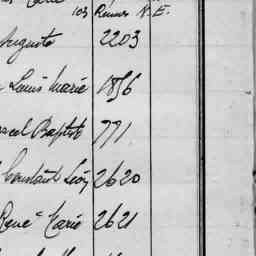 103 Rennes N. E.
Auguste 2203
Louis Marie 1856
Baptiste 771
Constant Léon 2620
René Marie 2621